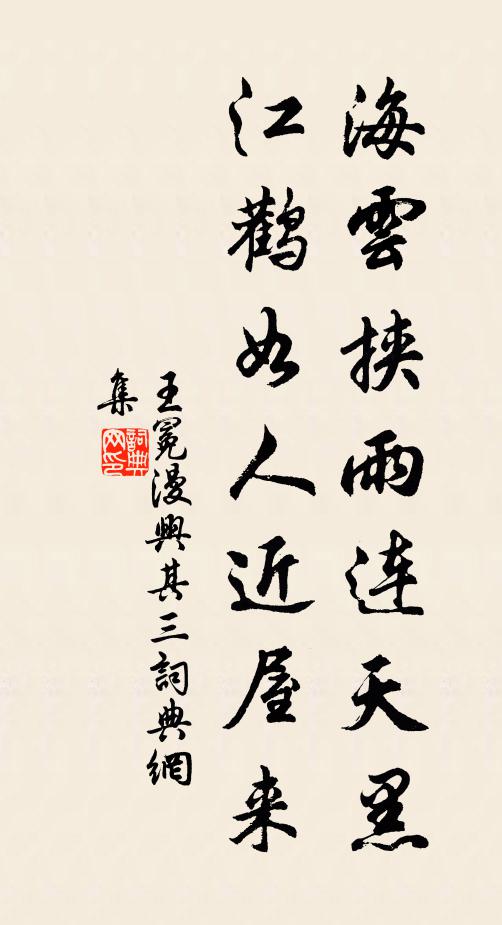 海雲挟雨連天黑
江鸛如人近屋来
王冕漫興其三詞典網
集
詞典
网印